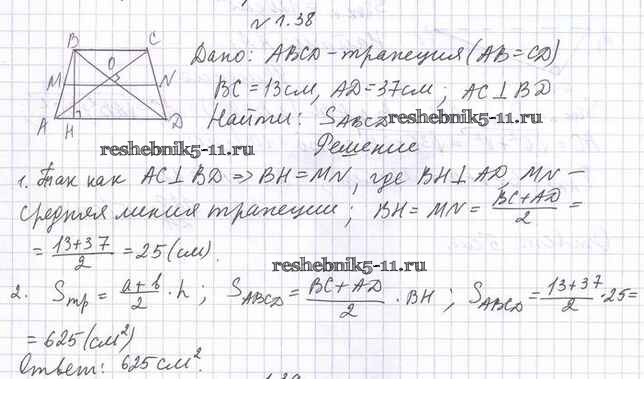 № 1.38
B C
O
M N
A H D
Дано: ABCD - трапеция (AB = CD)
BC = 13 см, AD = 37 см ; AC ⊥ BD
Найти: S_ABCD
reshebnik5-11.ru
Решение
reshebnik5-11.ru
1. Так как AC ⊥ BD ⇒ BH = MN, где BH ⊥ AD, MN -
средняя линия трапеции ; BH = MN = (BC + AD)/2 =
= (13 + 37)/2 = 25 (см).
reshebnik5-11.ru
2. S_тр = (a + b)/2 · h ; S_ABCD = (BC + AD)/2 · BH ; S_ABCD = (13 + 37)/2 · 25 =
= 625 (см²)
Ответ: 625 см².